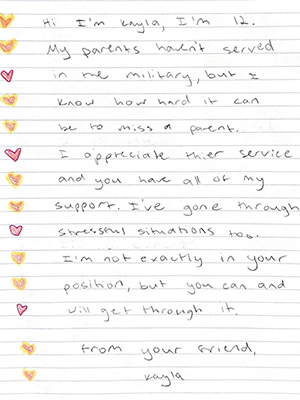 Hi I'm Kayla, I'm 12.
My parents haven't served
in the military, but I
know how hard it can
be to miss a parent.
I appreciate thier service
and you have all of my
support. I've gone through
stressful situations too.
I'm not exactly in your
position, but you can and
will get through it.
From your friend,
Kayla